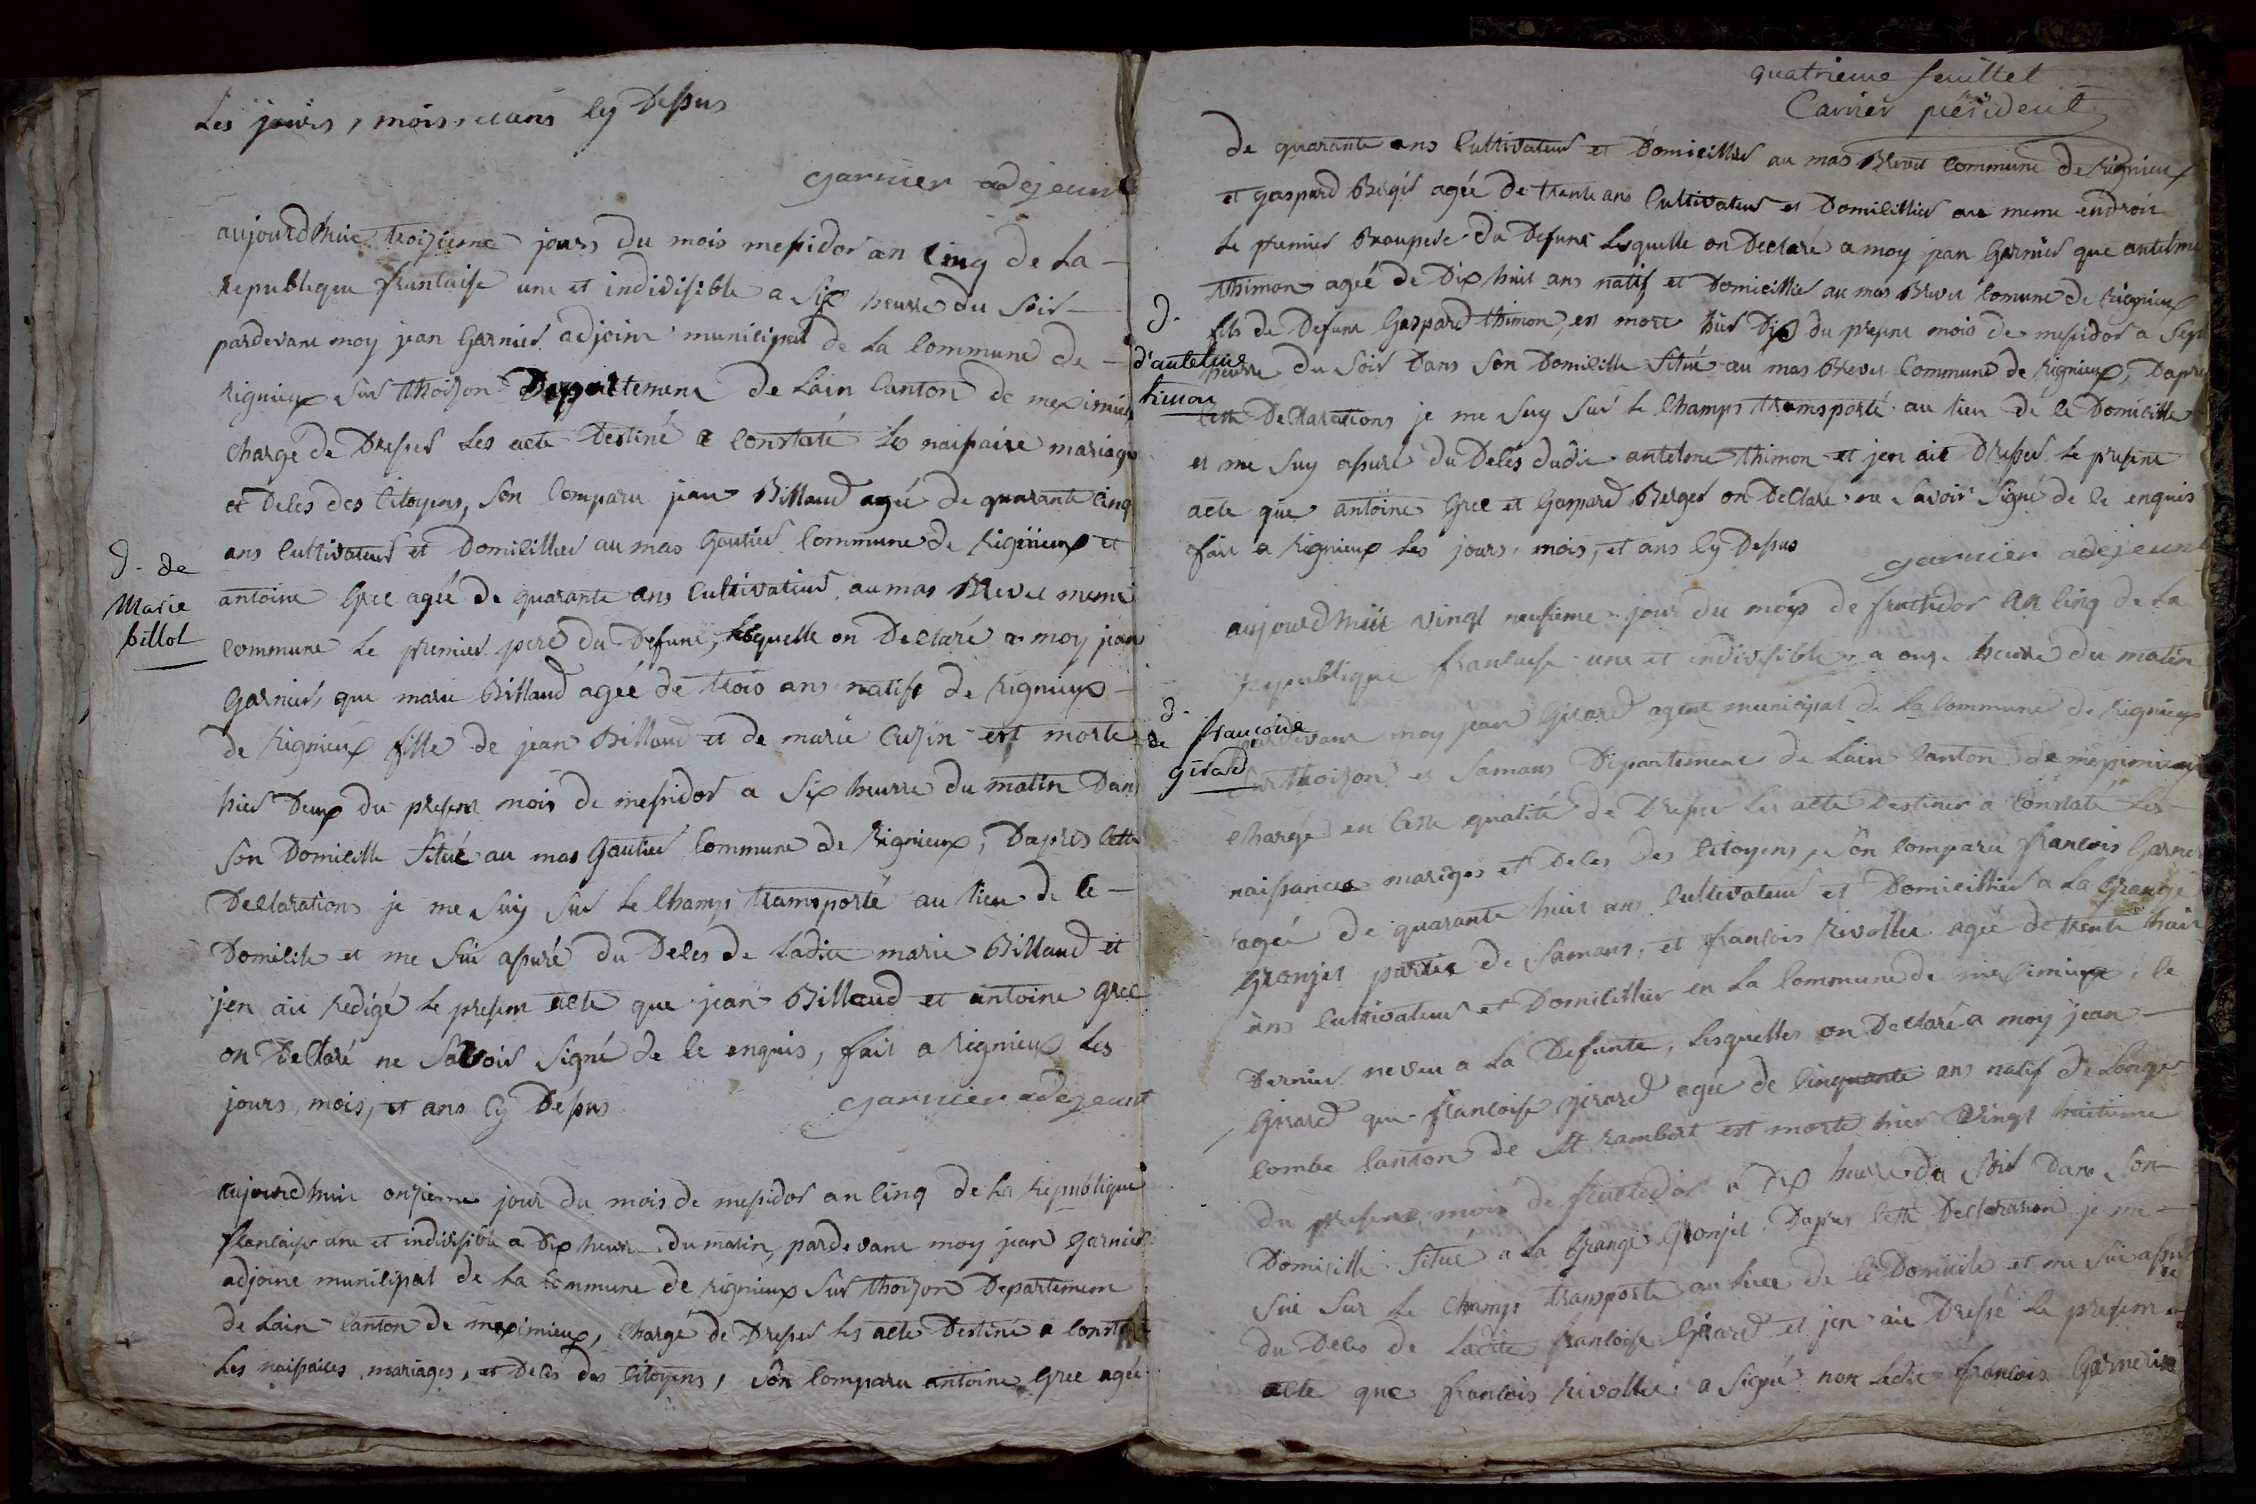 Les jours, mois, et ans cy Dessus
garnier adejeunt
aujourdhuit troizieme jours du mois messidor an cinq de La
republique francaise une et indivisible a six heurre du soir
pardevant moy jean Garnier adjoint municipal de La Commune de
Rignieux sur thoizon Departement de Lain Canton de meximieux
chargé de Dresser Les acte Destiné a constaté Les naissaice mariage
et Deces des Citoyens, Son Comparu jean Billaud agée de quarante cinq
ans Cultivateur et Domicillier au mas Gautier Commune de Rignieux et
D. de
Marie
billot
antoine Gree agée de quarante ans Cultivateur au mas Brevet meme
commune Le premier pere du Defunt, Lesquelle on Declaré a moy jean
Garnier, que marie Billaud agée de trois ans natife de Rignieux
de Rignieux fille de jean Billaud et de marie Cuzin est morte
hier Deux du present mois de messidor a six heurre du matin Dans
Son Domicille Situé au mas Gautier Commune de Rignieux, Dapres Cette
Declarations je me Suy Sur Le Champs transporté au Lieu de Ce
Domicile et me Sui assuré du Deces de Ladite marie Billaud et
jen ait Redigé Le present acte que jean Billaud et antoine Gree
on Declaré ne Savoir Signé de Ce enquis, fait a Rignieux Les
jours, mois, et ans Cy Dessus
garnier adejeunt
aujourdhuit onzieme jour du mois de messidor an Cinq de La Republique
francaise une et indivisible a Dix heurre du matin, pardevant moy jean Garnier
adjoint municipal de La Commune de Rignieux Sur thoizon Departement
de Lain Canton de meximieux, Chargé de Dresser Les acte Destiné a Constaté
Les naissaices, mariages, et Deces des Citoyens, Son Comparu antoine Gree agée
quatrieme feuillet
Carrier président
de quarante ans Cultivateur et Domicillier au mas Brevet Commune de Rignieux
et gaspard Bergér agée de trente ans Cultivateur et Domicillier au meme endroit
Le premier Beaupere du Defunt Lesquelle on Declaré a moy jean Garnier que antelme
thimon agée de Dix huit ans natif et Domicillier au mas Brevet Comune de Rignieux
D.
d'antelme
timon
fils de Defunt Gaspard thimon, est mort hier Dix du present mois de messidor a Sept
heurre du Soir Dans Son Domicille Situé au mas Brevet Commune de Rignieux, Dapres
Cette Declarations je me Suy Sur Le Champs transporté au Lieu de Ce Domicille
et me Suy assuré du Deces dudit antelme thimon et jen ait Dresser Le present
acte que antoine Gree et Gaspard Berger on Declaré ne Savoir Signé de Ce enquis
fait a Rignieux Les jours, mois, et ans Cy Dessus
garnier adejeunt
aujourdhuit vingt neufieme jour du mois de fructidor an Cinq de La
republique francaise une et indivisible a onze heurre du matin
D.
de francoise
girard
pardevant moy jean Girard agent municipal de La Commune de Rignieux
Sur thoizon et Samans Departement de Lain Canton de meximieux
Chargé en Cette qualité de Dresser Les acte Destiner a Constaté Les
naissances mariges et Deces des Citoyens, Son Comparu francois Garnier
agée de quarante huit ans Cultivateur et Domicillier a La Grange
Gronjet partie de Samans, et francois Rivollier agée de trente huit
ans Cultivateur et Domicillier en La Commune de meximieux, Le
Dernier neveu a La Defunte, Lesquelles on Declaré a moy jean
Girard que francoise girard agée de Cinquante ans natif de Longe
Combe Canton de St rambert est morte hier vingt huitieme
du present mois de fructidor a Dix heurre du Soir Dans Son
Domicille Situé a La Grange Gronjet Dapres Cette Declaration je me
Sui Sur Le Champs transporté au Lieu de Ce Domicile et me Sui assuré
du Deces de Ladite francoise Girard et jen ait Dressé Le present
acte que francois Rivollier a Signé non Ledit francois Garnier